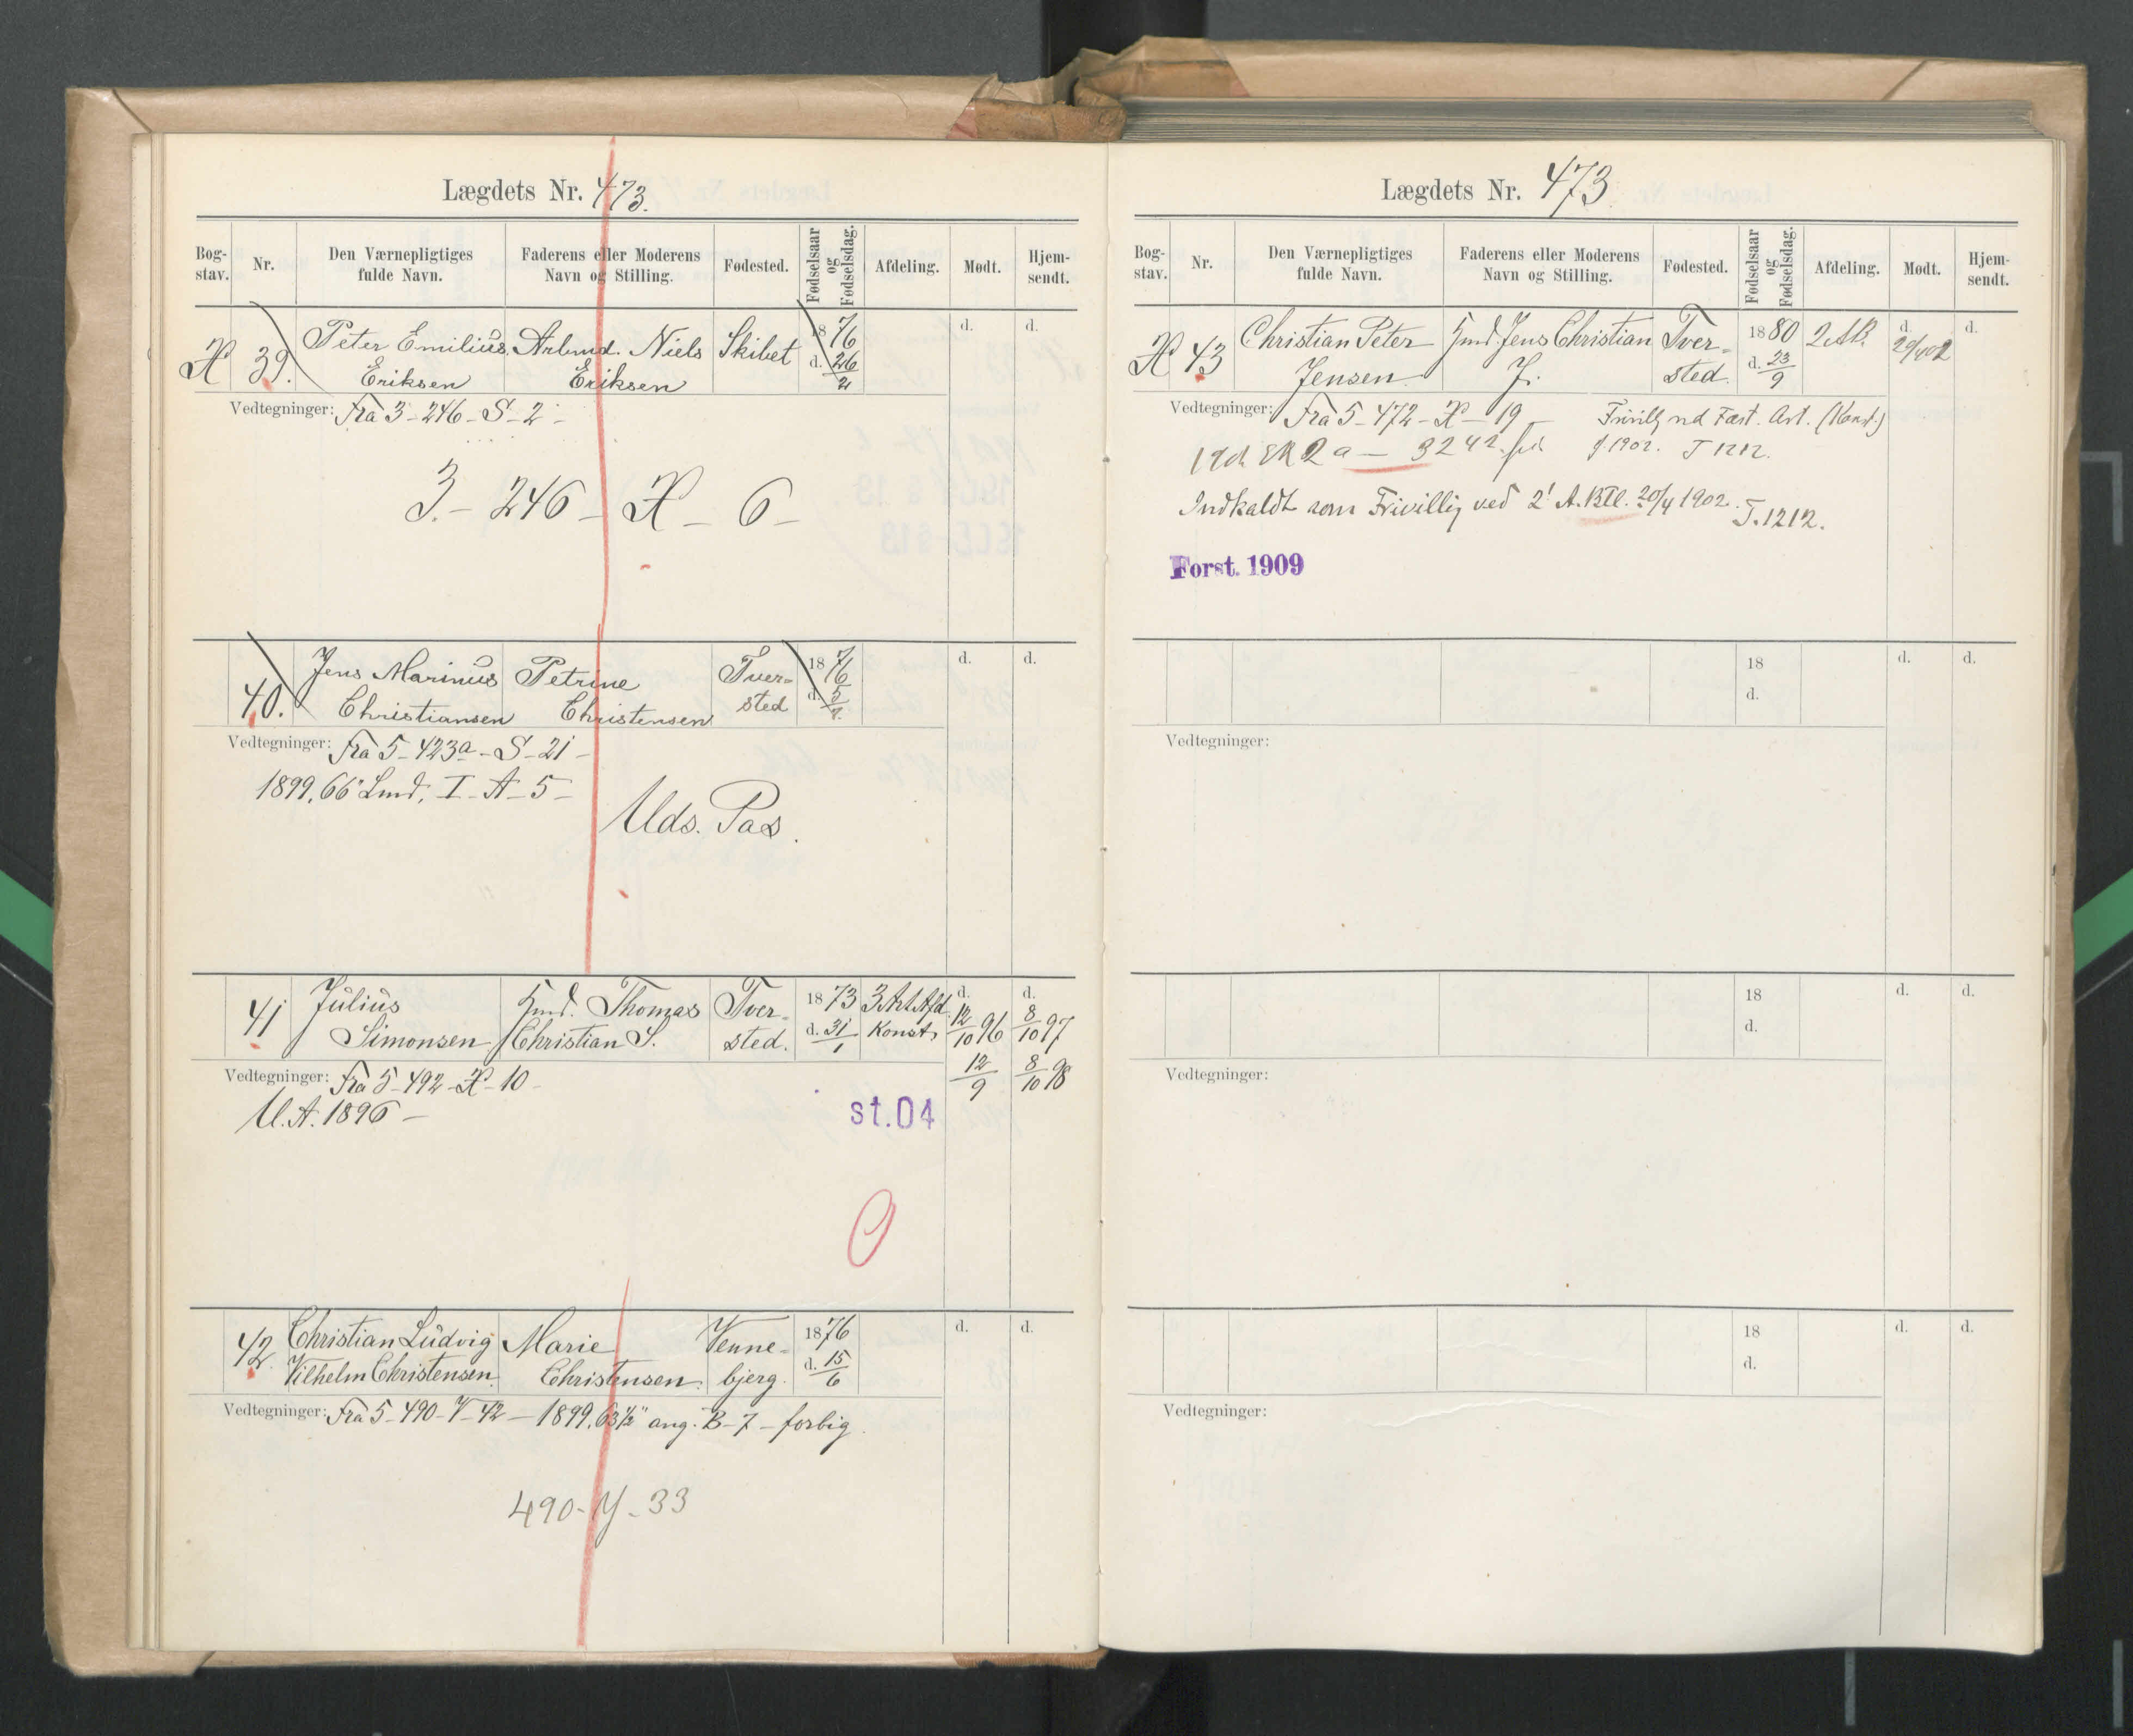 Lægdets Nr. 473.
Bog-stav. Nr. Den Værnepligtiges fulde Navn. Faderens eller Moderens Navn og Stilling. Fødested. Fødselsaar og Fødselsdag. Afdeling. Mødt. Hjem-sendt.
X 39. Peter Emilius Arbmd. Niels Skibet 1876 d. d.
Eriksen Eriksen d. 26/2
Vedtegninger: Fra 3-246-S-2-
3.-246-X-6-
40. Jens Marinus Petrine Tver- 1876 d. d.
Christiansen Christensen sted d. 5/7.
Vedtegninger: Fra 5-423a-S-21-
1899. 66" Lmd. I-A-5-
Uds. Pas.
41 Julius Hmd. Thomas Tver- 1873 3 Art. Afd. d. 12/10 96 d. 8/10 97
Simonsen Christian S. sted. d. 31/1 Konst. 12/9 8/10 98
Vedtegninger: Fra 5-492-X-10-
U.A. 1896-
st.04
42. Christian Ludvig Marie Venne- 1876 d. d.
Vilhelm Christensen. Christensen. bjerg. d. 15/6
Vedtegninger: Fra 5-490-V-42-1899. 63½" ang. B-7-forbig.
490-Y-33
Lægdets Nr. 473
Bog-stav. Nr. Den Værnepligtiges fulde Navn. Faderens eller Moderens Navn og Stilling. Fødested. Fødselsaar og Fødselsdag. Afdeling. Mødt. Hjem-sendt.
X 43 Christian Peter Hmd. Jens Christian Tver- 1880 d. d.
Jensen. J. sted. d. 23/9
Vedtegninger: Fra 5-472-X-19-
1902. J 1212.
Indkaldt som Frivillig ved 2' A. Btl. 20/4 1902. J. 1212.
Forst. 1909
18 d. d.
d.
Vedtegninger:
18 d. d.
d.
Vedtegninger:
18 d. d.
d.
Vedtegninger: